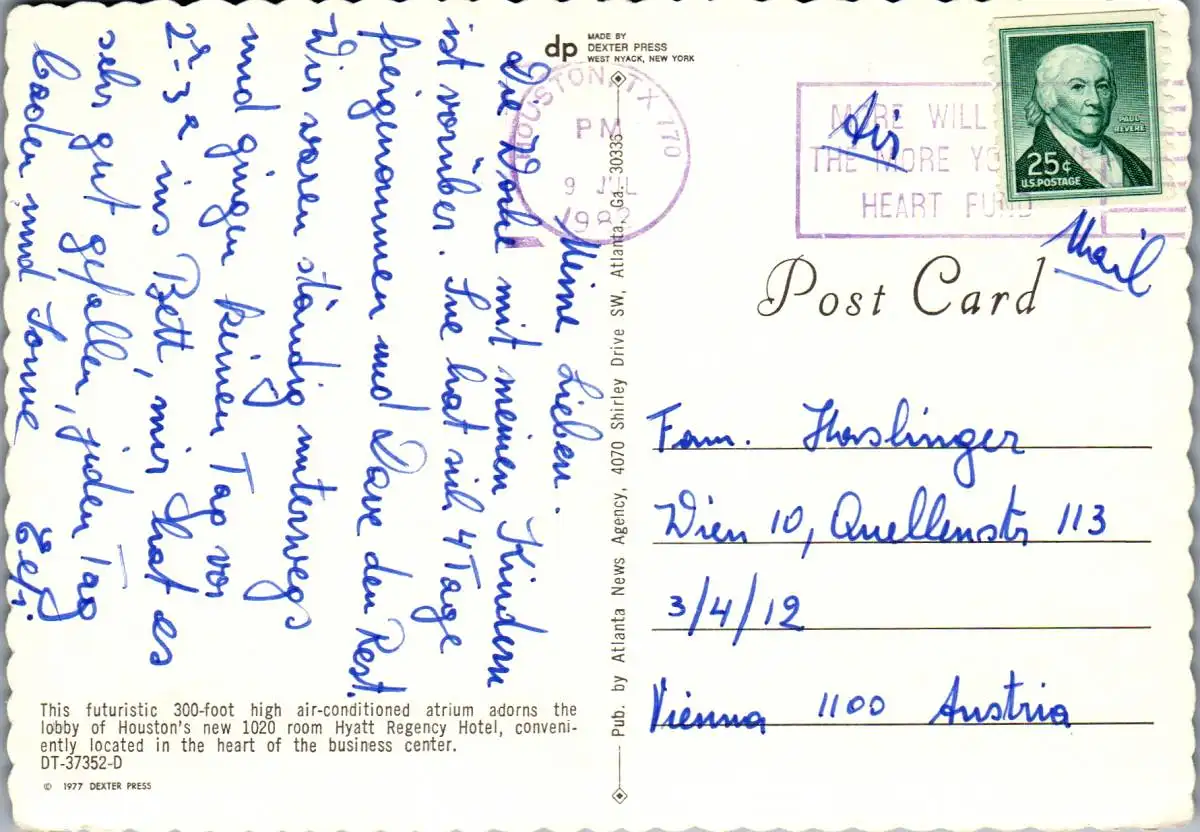 Meine Lieben.
Die Woche mit meinen Kindern
ist vorüber. Sue hat sich 4 Tage
freigenommen und Dave den Rest.
Wir waren ständig unterwegs
und gingen keinen Tag vor
2h-3h ins Bett, mir hat es
sehr gut gefallen, jeden Tag
baden und Sonne
This futuristic 300-foot high air-conditioned atrium adorns the
lobby of Houston's new 1020 room Hyatt Regency Hotel, conveni-
ently located in the heart of the business center.
DT-37352-D
© 1977 DEXTER PRESS
dp
MADE BY
DEXTER PRESS
WEST NYACK, NEW YORK
Pub. by Atlanta News Agency, 4070 Shirley Drive SW, Atlanta, Ga. 30336
HOUSTON, TX 170
PM
9 JUL
1982
MORE WILL
THE MORE YO
HEART FUND
PAUL
REVERE
25¢
U.S. POSTAGE
Air
Mail
Post Card
Fam. Haslinger
Wien 10, Quellenstr 113
3/4/12
Vienna 1100 Austria